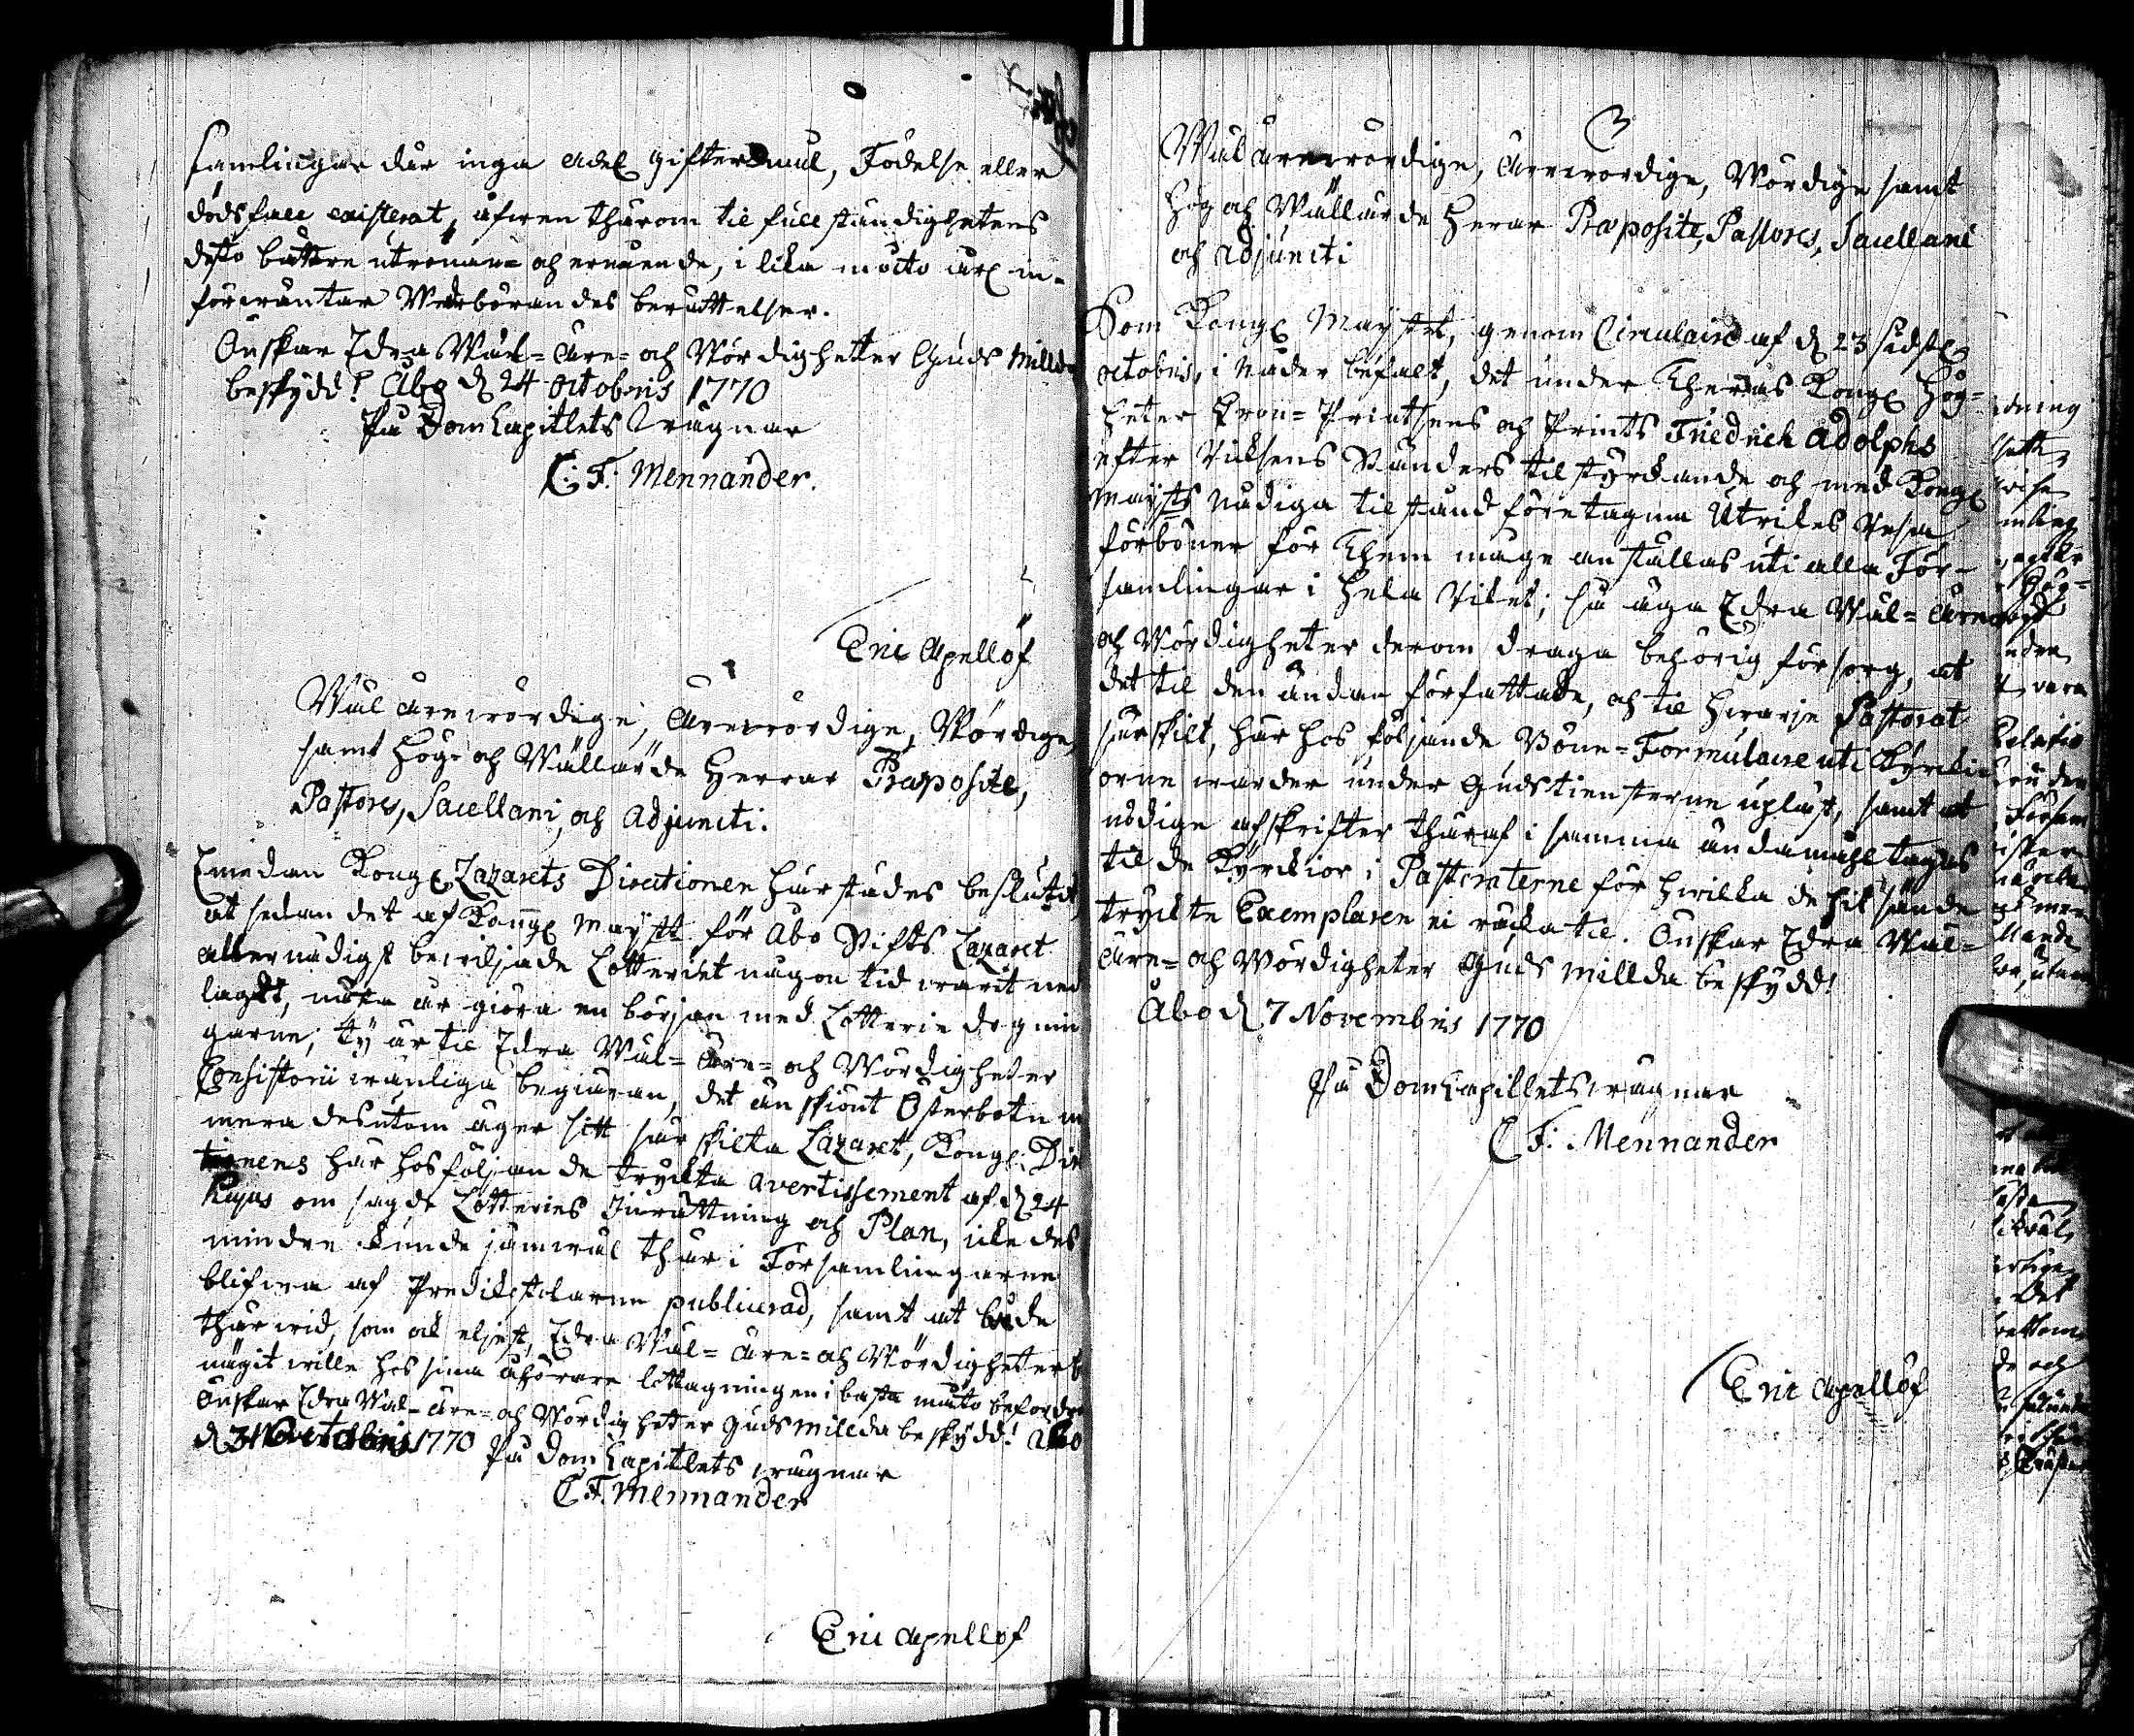 samlingar där inga Adel Giftermål, Födelse eller
dödsfall existerat, äfwen thärom til fullständighetens
desto bättre utrönan- och ernående, i lika måtto är in-
förwäntar Wederbörandes berättelser.
Önskar Edra Wäl- Äre- och Wördigheter Guds Millda
beskydd! Åbo d 24 Octobris 1770
På DomCapitlets wägnar
C. F. Mennander.
Eric Apellöf
Wäl Ärewördige, Ärewördige, Wördige,
samt Hög- och Wällärde Herrar Præposite,
Pastores, Sacellani, och Adjuncti.
Emedan Kongl Lazarets Directionen härstädes beslutit,
at sedan det af Kongl Mayst för Åbo Stifts Lazaret
allernådigst bewiljade Lotteriet någon tid warit ned
lagdt, göra en början med Lotterie dragnin
garne; Ty är til Edra Wäl- Äre- och Wördigheter
Consistorii wänliga begäran, det änskiönt Österbotn
mera desutom äger sitt särskilta Lazaret, Kongl. Dire
tionens här hosföljande tryckta Avertissement af d 24
Hujus om sagde Lotteries Inrättning och Plan, icke des
mindre kunde jämwäl thär i Församlingarne
blifwa af Predikstolarne publicerad, samt at både
thärwid, som ock eljest, Edra Wäl- Äre- och Wördigheter
någit wille hos sina åhörare lottagningen i bästa måtto befordra
Önskar Edra Wäl- Äre- och Wördigheter Guds millda beskydd! Åbo
d 31 Octobris 1770 På DomCapitlets wägnar
C. F. Mennander
Eric Apellöf
Wäl Ärewördige, Ärewördige, Wördige samt
Hög och Wällärde Herrar Præposite, Pastores, Sacellani
och Adjuncti
Som Kongl Mayst, genom Circulaire af d 23 sidstl
Octobris, i Nåder befalt, det under Theras Kongl Hög-
heter Cron-Printsens och Prints Friedrich Adolphs
efter Riksens Ständers tilstyrkande och med Kongl
Maysts nådiga tilstånd företagna Utrikes Resa
förböner för Them måge anställas uti alla För-
samlingar i hela Riket; så äga Edra Wäl- Äre
och Wördigheter derom draga behörig försorg, at
det til den ändan författade, och til hwarje Pastorat
särskilt, här hos följande Böne-Formulaire uti Kyrki
orne warder under Gudstiensterne upläst, samt at
nödige afskrifter thäraf i samma ändamåhl tagas
til de Kyrkior i Pastoraterne för hwilka de hit sände
tryckte Exemplaren ei räcka til. Önskar Edra Wäl-
Äre- och Wördigheter Guds millda beskydd!
Åbo d 7 Novembris 1770
På DomCapitlets wägnar
C F. Mennander
Eric Apellöf